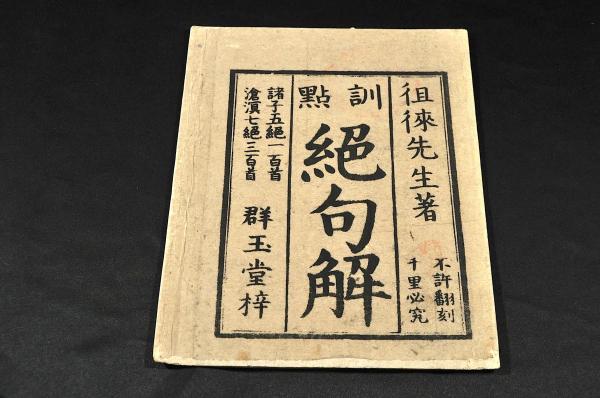 徂徠先生著
不許翻刻
千里必究
訓點
絕句解
諸子五絕一百首
滄溟七絕三百首
群玉堂梓